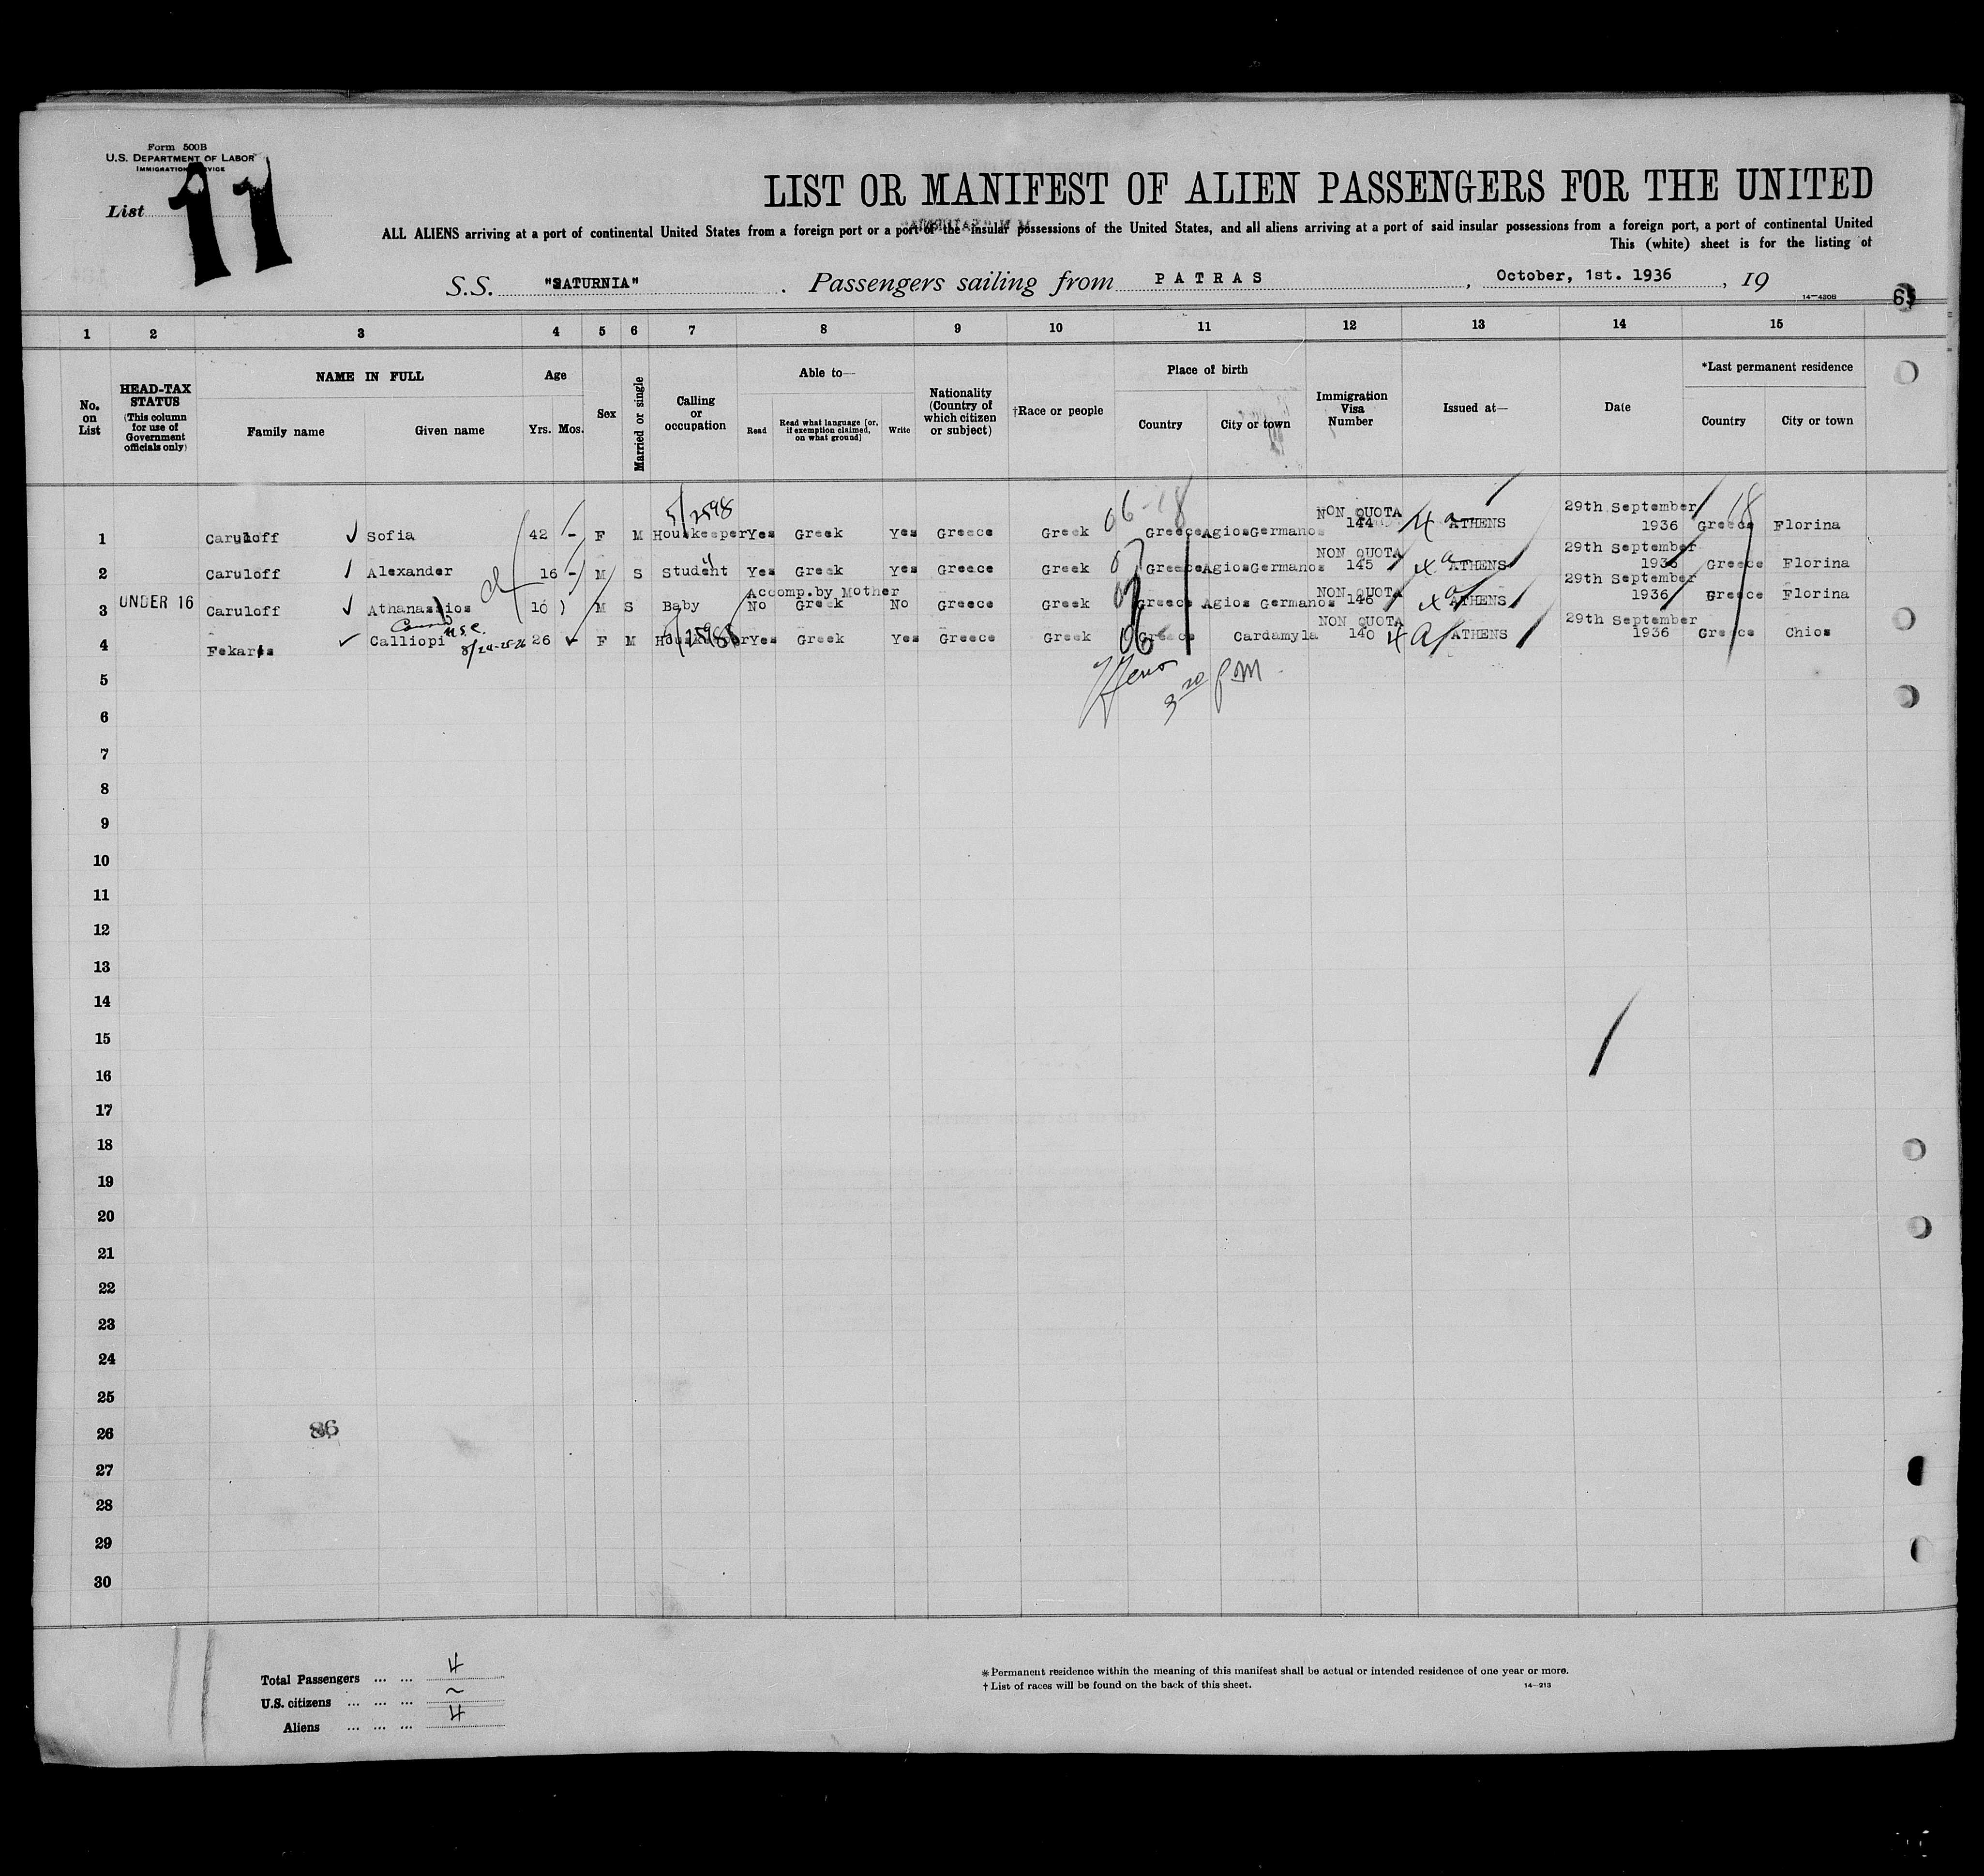 Form 500B
U.S. DEPARTMENT OF LABOR
IMMIGRATION SERVICE
List 11
LIST OR MANIFEST OF ALIEN PASSENGERS FOR THE UNITED
ALL ALIENS arriving at a port of continental United States from a foreign port or a port of the insular possessions of the United States, and all aliens arriving at a port of said insular possessions from a foreign port, a port of continental United
This (white) sheet is for the listing of
S.S. "SATURNIA" . Passengers sailing from PATRAS , October, 1st. 1936 , 19
14—420B
65
1 2 3 4 5 6 7 8 9 10 11 12 13 14 15
No. on List
HEAD-TAX STATUS (This column for use of Government officials only)
NAME IN FULL
Family name Given name
Age
Yrs. Mos.
Sex
Married or single
Calling or occupation
Able to—
Read Read what language (or, if exemption claimed, on what ground) Write
Nationality (Country of which citizen or subject)
†Race or people
Place of birth
Country City or town
Immigration Visa Number
Issued at—
Date
*Last permanent residence
Country City or town
5/2598 06-18 NON QUOTA 29th September 18
1 Caruloff Sofia 42 - F M Houskeeper Yes Greek Yes Greece Greek Greece AgiosGermanos 144 ATHENS 1936 Greece Florina
NON QUOTA 29th September
2 Caruloff Alexander 16 - M S Student Yes Greek Yes Greece Greek Greece AgiosGermanos 145 ATHENS 1936 Greece Florina
UNDER 16 Accomp.by Mother NON QUOTA 29th September
3 Caruloff Athanassios 10 M S Baby No Greek No Greece Greek Greece Agios Germanos 146 ATHENS 1936 Greece Florina
NON QUOTA 29th September
4 Fekaris Calliopi 8/24-25-26 26 F M Yes Greek Yes Greece Greek 06 Greece Cardamyla 140 ATHENS 1936 Greece Chios
3 20 PM
5
6
7
8
9
10
11
12
13
14
15
16
17
18
19
20
21
22
23
24
25
26 86
27
28
29
30
Total Passengers ... ... 4
U.S. citizens ... ... ... ~
Aliens ... ... ... 4
* Permanent residence within the meaning of this manifest shall be actual or intended residence of one year or more.
† List of races will be found on the back of this sheet. 14—213